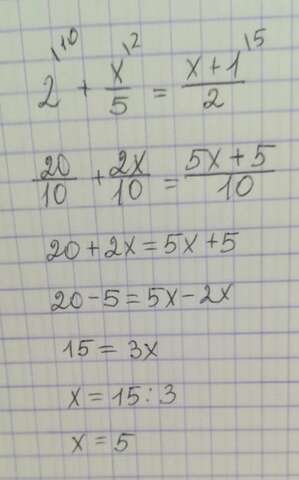 2^{\10} + \frac{x}{5}^{\2} = \frac{x+1}{2}^{\5}
\frac{20}{10} + \frac{2x}{10} = \frac{5x+5}{10}
20+2x=5x+5
20-5=5x-2x
15=3x
x=15:3
x=5